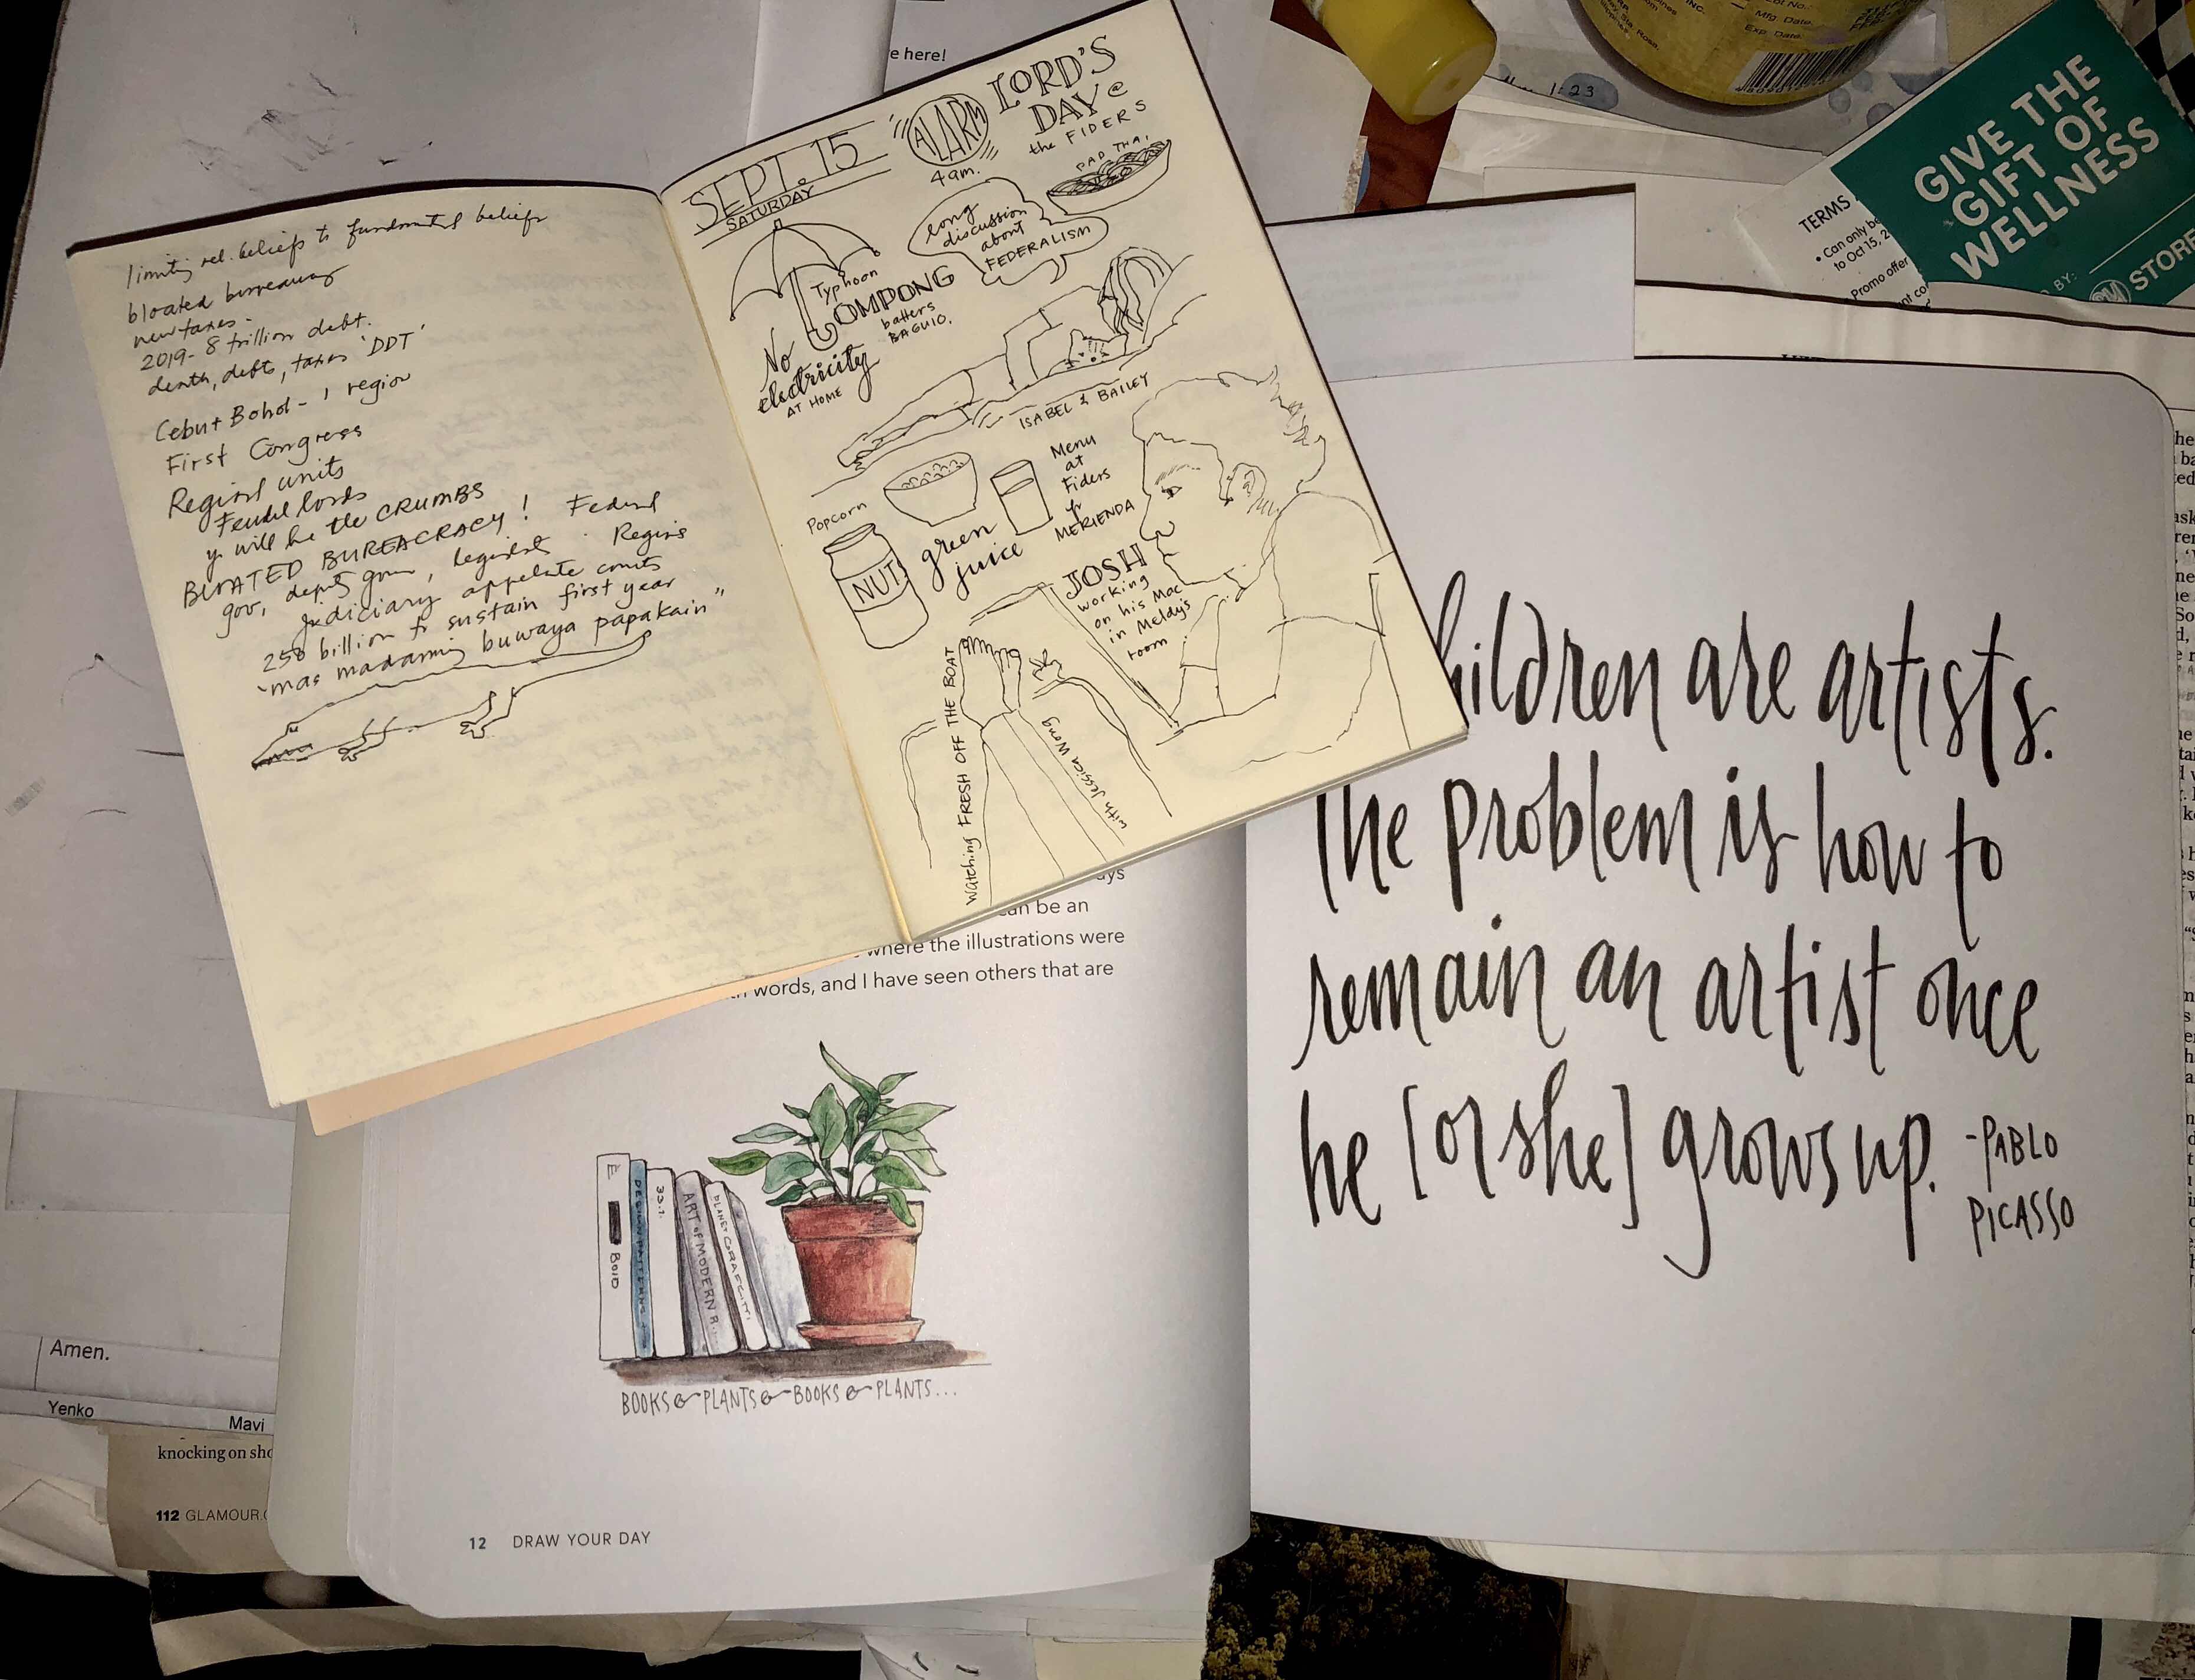 limiting rel. beliefs to fundamental beliefs
bloated bureaucracy
new taxes -
2019 - 8 trillion debt.
death, debts, taxes 'DDT'
Cebu + Bohol - 1 region
First Congress
Regional units
Feudal lords
will be the CRUMBS
BLOATED BUREACRACY! Federal
gov, deputy gov, legislat. Regions
judiciary appelate courts
250 billion to sustain first year
"mas madaming buwaya papakain"
SEPT. 15
SATURDAY
ALARM
4am.
LORD'S
DAY @
the FIDERS
PAD THAI
long
discussion
about
FEDERALISM
Typhoon
OMPONG
batters
BAGUIO.
No
electricity
AT HOME
ISABEL & BAILEY
Popcorn
NUT
green
juice
Menu
at
Fiders
for
MERIENDA
JOSH
working
on his Mac
in Meldy's
room
Watching FRESH OFF THE BOAT
with Jessica Wong
e here!
INC.
Mfg. Date:
Exp. Date:
1:23
GIVE THE
GIFT OF
WELLNESS
BY:
STORE
TERMS
• Can only be
to Oct 15, 2
Promo offer
can be an
where the illustrations were
words, and I have seen others that are
BOID
DESIGN PATTERNS
ART of MODERN R.
PLANET GRAFFITI
BOOKS & PLANTS & BOOKS & PLANTS...
12 DRAW YOUR DAY
children are artists.
The problem is how to
remain an artist once
he [or she] grows up.
-PABLO
PICASSO
Amen.
Yenko
Mavi
knocking on sho
112 GLAMOUR.C